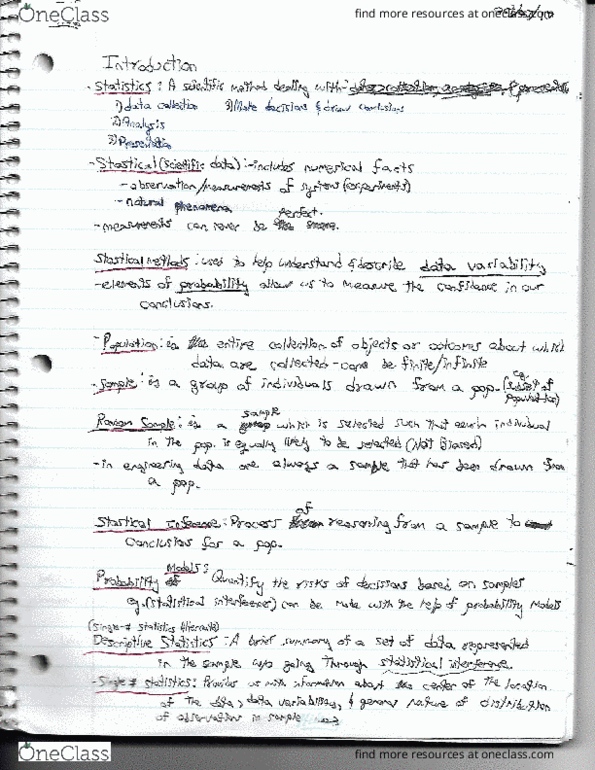 OneClass
find more resources at oneclass.com
Introduction
- Statistics : A scientific method dealing with -
1) data collection 3) Make decisions & draw conclusions
2) Analysis
3) Presentation
- Stastical (scientific data) : - includes numerical facts
- observation/measurements of systems (experiments)
- natural phenomena
perfect.
- measurements can never be the same.
Stastical methods : used to help understand & describe data variability
- elements of probability allow us to measure the confidence in our
conclusions.
- Population : is the entire collection of objects or outcomes about which
data are collected - can be finite/infinite
- Sample : is a group of individuals drawn from a pop. (eg. subset of population)
Random Sample : is a sample group which is selected such that each individual
in the pop. is equally likely to be selected (Not Biased)
- in engineering data are always a sample that has been drawn from
a pop.
Stastical Inference : Process of reasoning from a sample to
Conclusions for a pop.
Probability Models : Quantify the risks of decisions based on samples
eg. (statistical interference) can be made with the help of probability models
(Single-# statistics
Descriptive Statistics : - A brief summary of a set of data represented
in the sample w/o going through statistical interference.
- Single # statistics : Provides us with information about the center of the location
of the data, data variability, & general nature of distribution
of observations in sample
OneClass
find more resources at oneclass.com